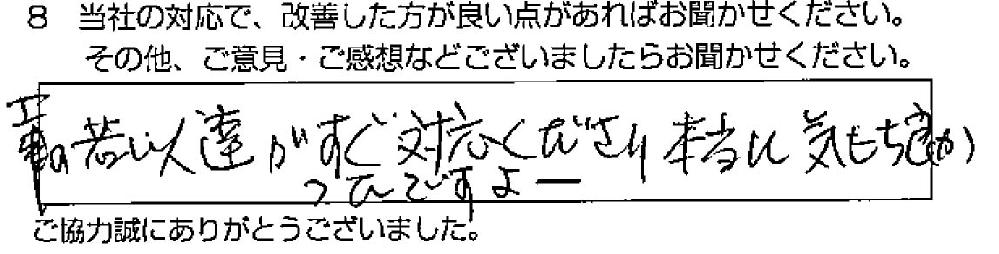 8 当社の対応で、改善した方が良い点があればお聞かせください。
その他、ご意見・ご感想などございましたらお聞かせください。
工事の若い人達がすぐ対応くださり本当に気もち良か
ったですよー
ご協力誠にありがとうございました。